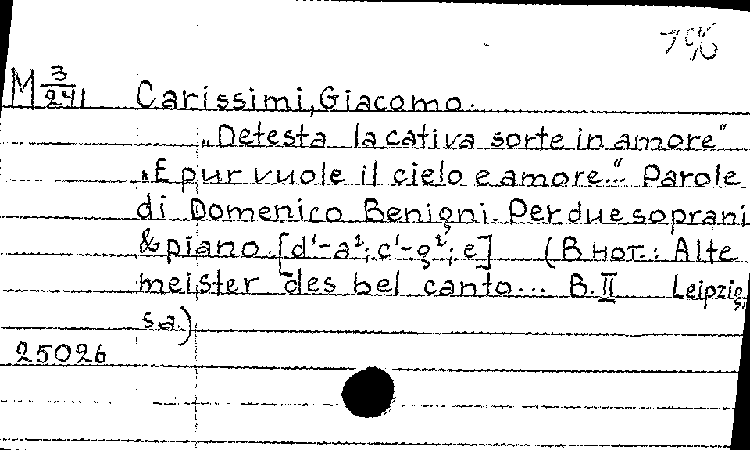 196
M 3/241 Carissimi, Giacomo.
„Detesta la cativa sorte in amore"
„E pur vuole il cielo e amore." Parole
di Domenico Benigni. Per due soprani
& piano. [d¹-a²; c¹-g²; e] (В нот.: Alte
meister des bel canto... B. II Leipzig,
s.a.)
25026